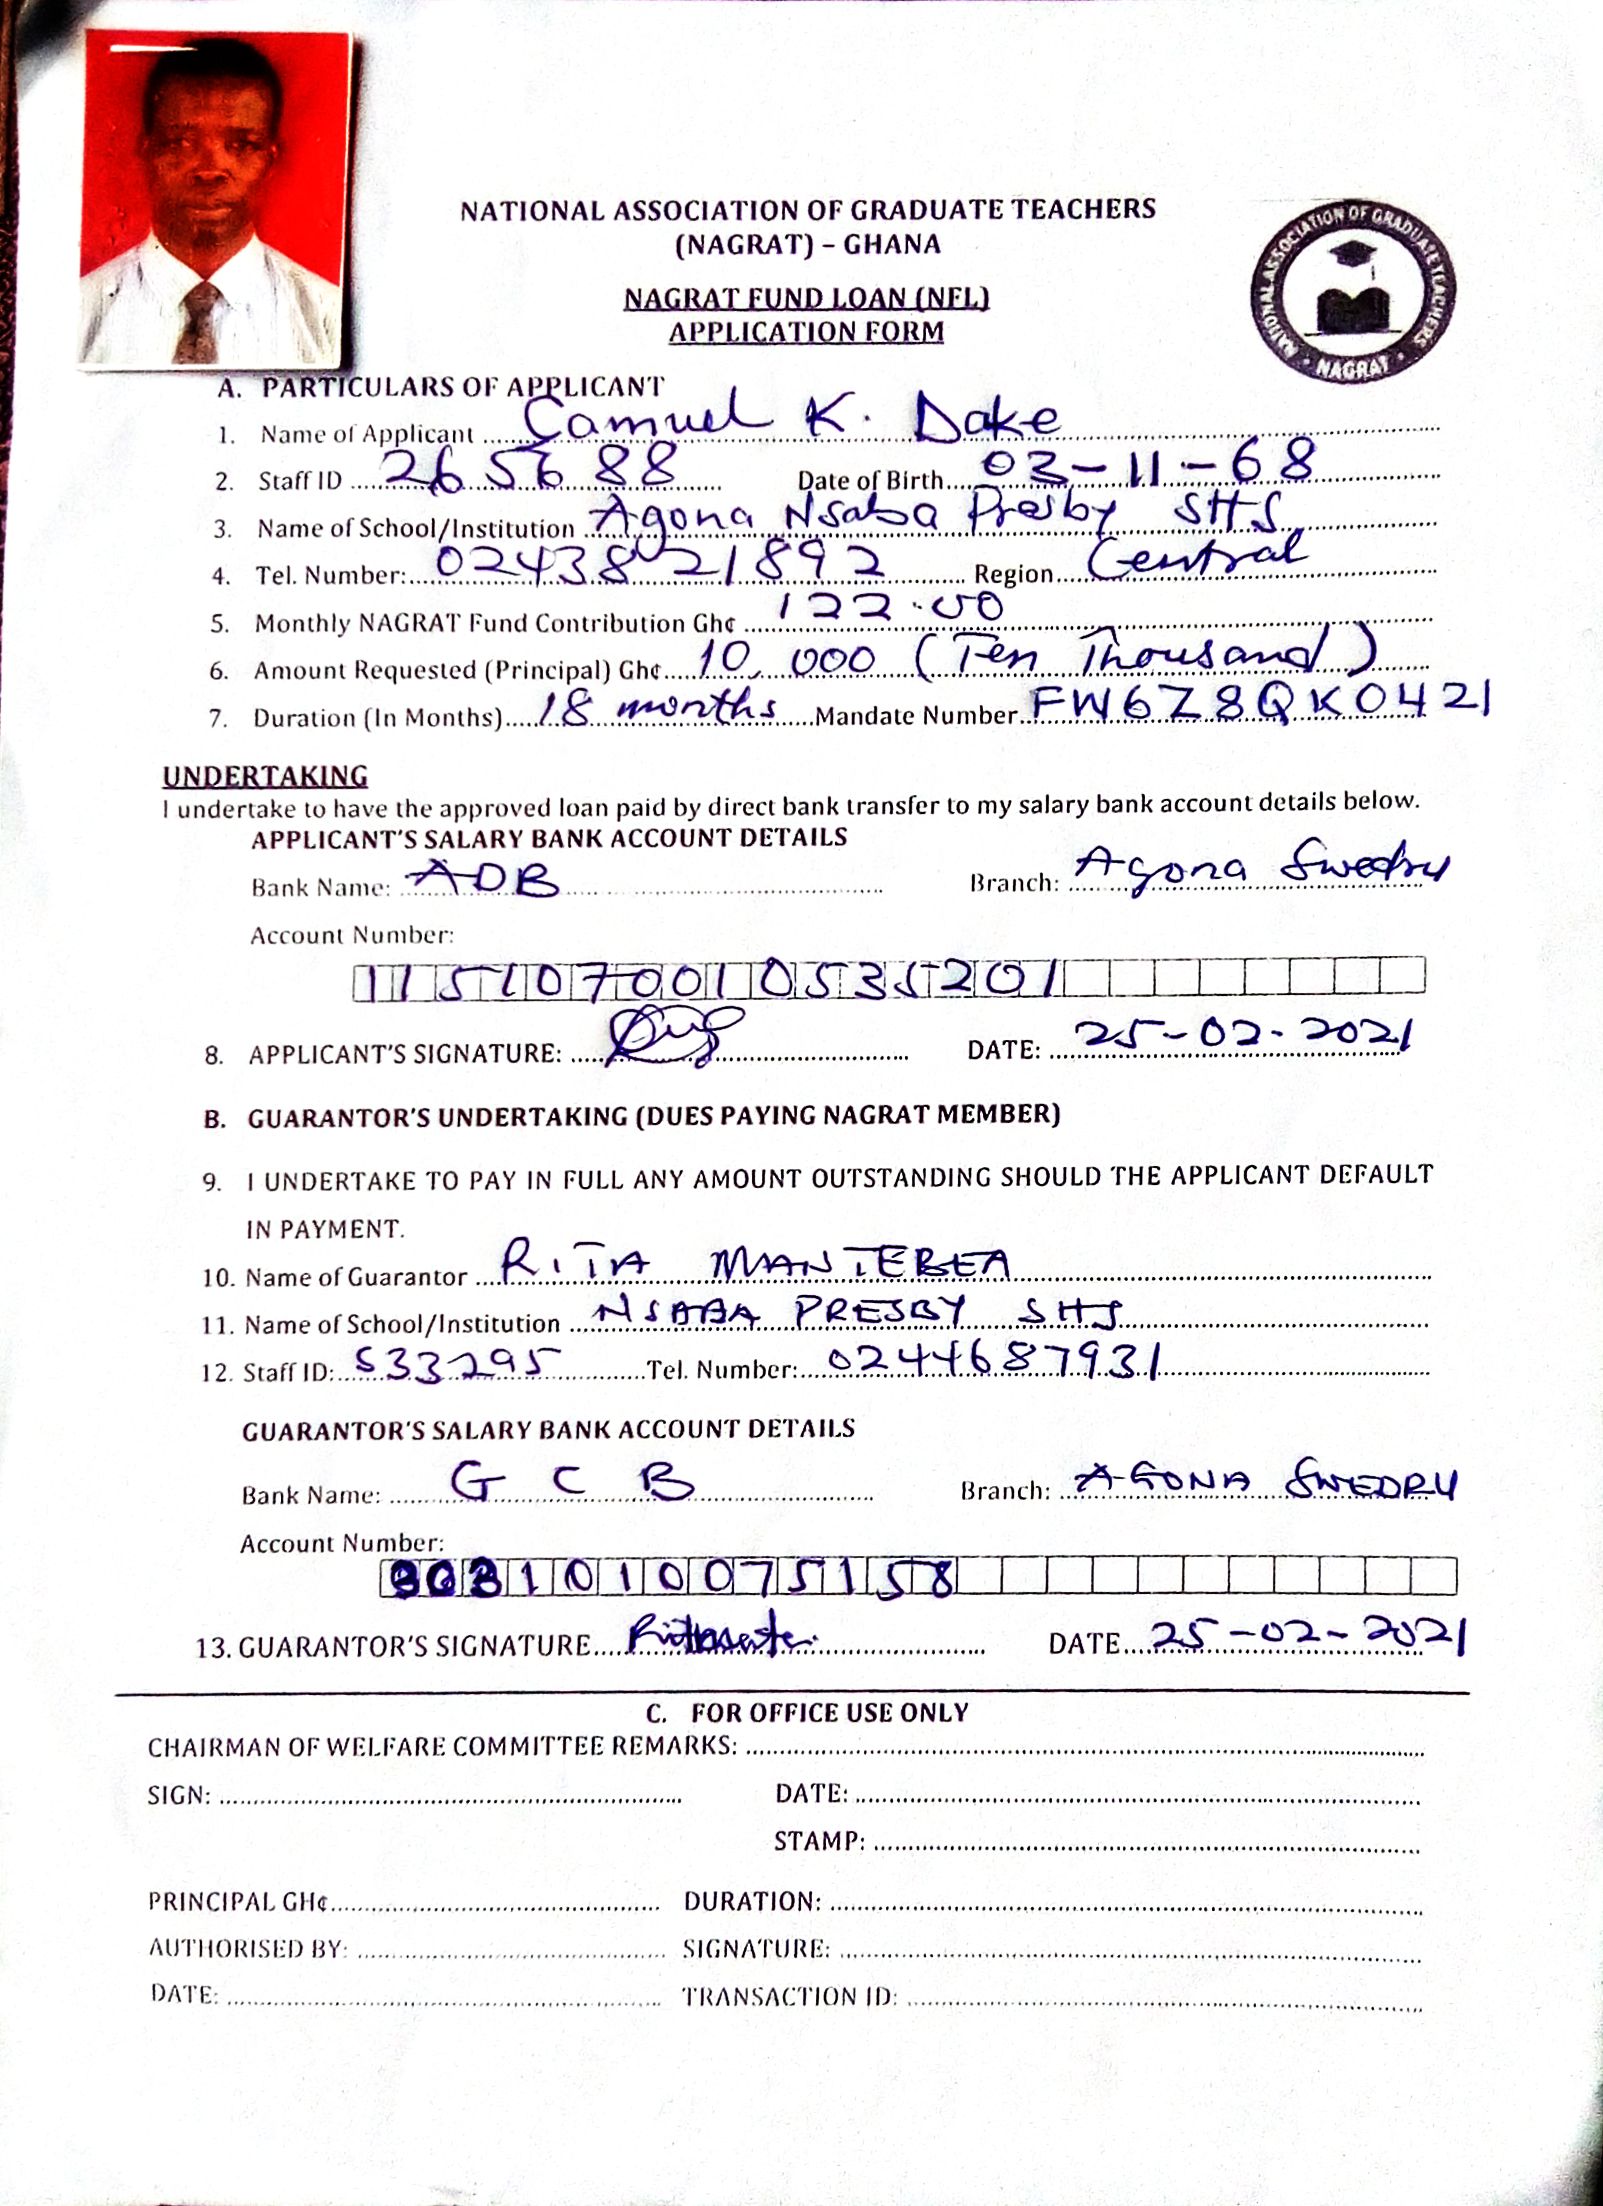 NATIONAL ASSOCIATION OF GRADUATE TEACHERS
(NAGRAT) – GHANA
NATIONAL ASSOCIATION OF GRADUATE TEACHERS
· NAGRAT ·
NAGRAT FUND LOAN (NFL)
APPLICATION FORM
A. PARTICULARS OF APPLICANT
1. Name of Applicant Samuel K. Dake
2. Staff ID 265688 Date of Birth 03-11-68
3. Name of School/Institution Agona Nsaba Presby SHS
4. Tel. Number: 0243821892 Region Central
5. Monthly NAGRAT Fund Contribution Gh¢ 122.00
6. Amount Requested (Principal) Gh¢ 10,000 (Ten Thousand)
7. Duration (In Months) 18 months Mandate Number FW6Z8QK0421
UNDERTAKING
I undertake to have the approved loan paid by direct bank transfer to my salary bank account details below.
APPLICANT'S SALARY BANK ACCOUNT DETAILS
Bank Name: ADB Branch: Agona Swedru
Account Number:
1151070010535201
8. APPLICANT'S SIGNATURE: DATE: 25-02-2021
B. GUARANTOR'S UNDERTAKING (DUES PAYING NAGRAT MEMBER)
9. I UNDERTAKE TO PAY IN FULL ANY AMOUNT OUTSTANDING SHOULD THE APPLICANT DEFAULT
IN PAYMENT.
10. Name of Guarantor RITA MANTEBEA
11. Name of School/Institution NSABA PRESBY SHS
12. Staff ID: 533295 Tel. Number: 0244687931
GUARANTOR'S SALARY BANK ACCOUNT DETAILS
Bank Name: G C B Branch: AGONA SWEDRU
Account Number:
13. GUARANTOR'S SIGNATURE DATE 25-02-2021
C. FOR OFFICE USE ONLY
CHAIRMAN OF WELFARE COMMITTEE REMARKS:
SIGN: DATE:
STAMP:
PRINCIPAL GH¢ DURATION:
AUTHORISED BY: SIGNATURE:
DATE: TRANSACTION ID: